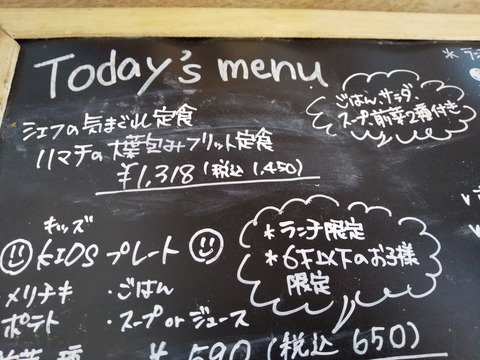 Today's menu
シェフの気まぐれ定食
ハマチの大葉包みフリット定食
¥1,318 (税込 1,450)
ごはん サラダ
スープ 前菜2種付き
キッズ
KIDS プレート
*ランチ限定
*6才以下のお子様
限定
メリチキ ・ごはん
ポテト ・スープ or ジュース
¥590 (税込 650)